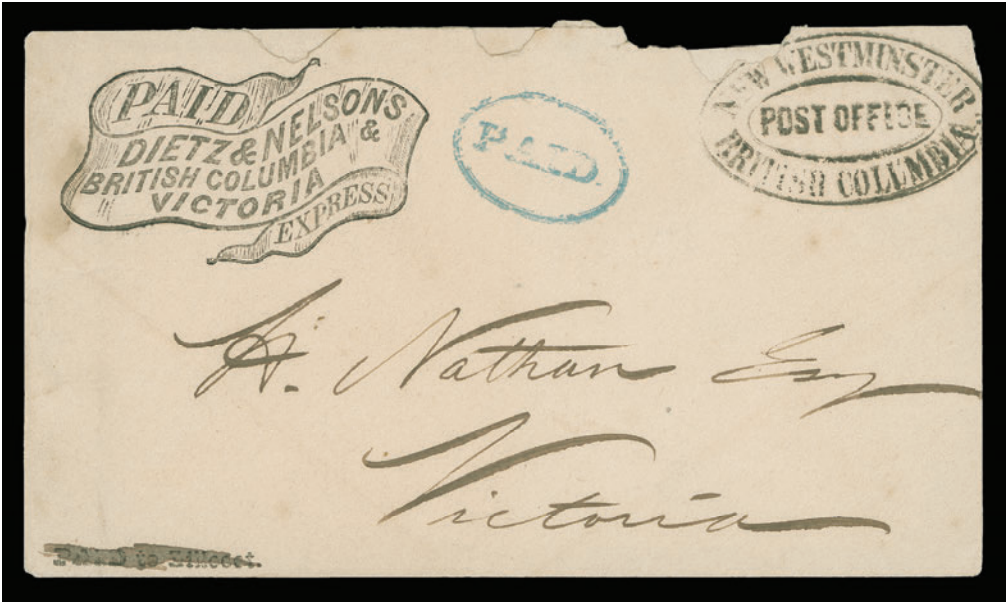 PAID
DIETZ & NELSONS
BRITISH COLUMBIA &
VICTORIA
EXPRESS
PAID.
NEW WESTMINSTER
POST OFFICE
BRITISH COLUMBIA
H. Nathan Esq
Victoria
to Lillooet.